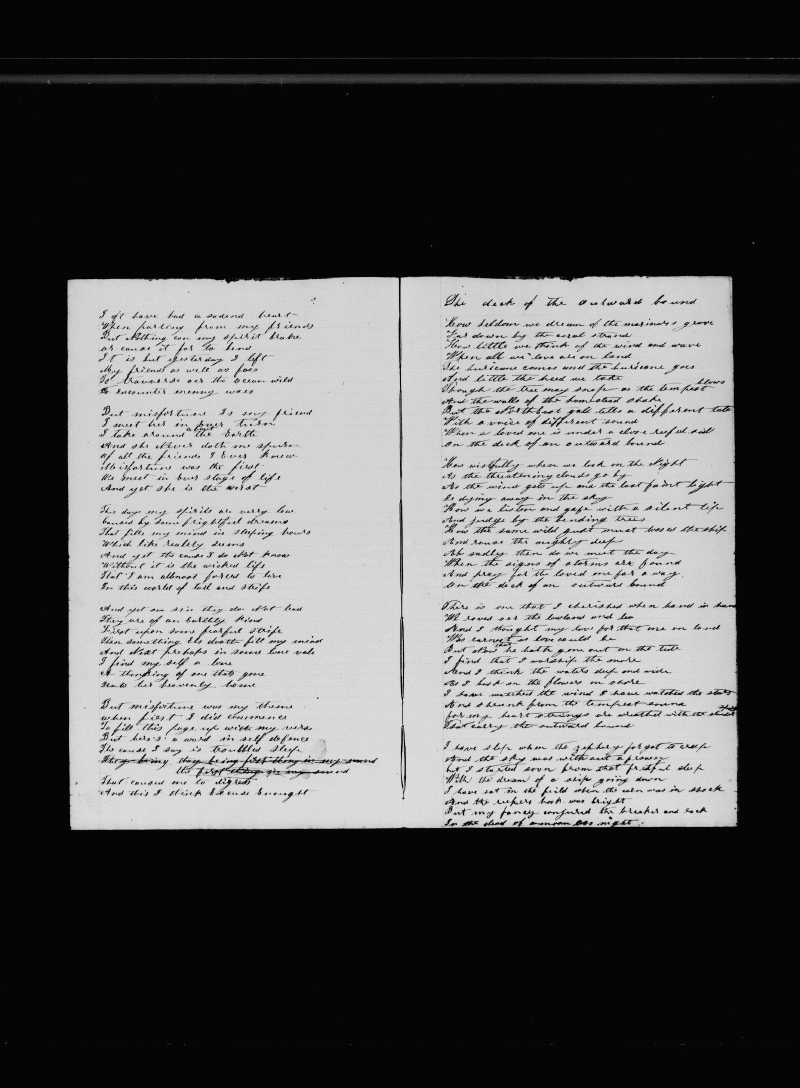 I oft have had a sadend heart
When parting from my friends
But Nothing can my spirit brake
or cause it for to bend
It is but yesterday I left
My friends as well as foes
To traverse oer the ocean wild
to encounter menny woes
But misfortune Is my friend
I meet her in Ever turn
I take around the Earth
And she Never doth me spurn
Of all the friends I Ever knew
Misfortune was the first
We meet in Ever stage of life
And yet she is the worst
This day my spirits are verry low
Caused by some frightful dreams
That fills my mind in sleeping hours
Which like reality seems
And yet the cause I do Not know
Without it is the wicked life
That I am allmost forced to live
In this world of toil and strife
And yet on sin they do Not lead
They are of an Earthly kind
First upon some fearful strife
Then something Els doath fill my mind
And Next prehaps in some lone vale
I find my self a lone
A thinking of one thats gone
Unto her heavenly home
But misfortune was my theme
when first I did commence
To fill this page up with my vers
But here's a word in self defence
The cause I say is troubbled sleep
They being the first thing in my mind
That caused me to digress
And this I think Excuse Enought
The deck of the outward bound
How seldom we dream of the mariners grave
Far down by the coral strand
How little we think of the wind and wave
When all we love are on land
The hurricane comes and the hurricane goes
And little the heed we take
Though the tree may snap as the tempest blows
And the walls of the homestead shake
But the North East gale tells a different tale
With a voice of different sound
When a loved one is under a close reefed sail
On the deck of an outward bound
How wistfully when we look on the Night
As the threatening clouds go by
As the wind gets up and the last faint light
Is dying away in the sky
How we listen and gase with a silent lip
And judge by the bending trees
How the same wild gust must toss the ship
And rouse the mighty deep
Ah sadley then do we meet the day
When the signs of storms are found
And pray for the loved one far a way
On the deck of an outward bound
There is one that I cherished when hand in hand
We roved oer the lowland and lea
And I thought my love for that one on land
Was earnest as love could be
But Now he hath gone out on the tide
I find that I worship the more
And I think the waters deep and wide
As I bask on the flowers on shore
I have watched the wind I have watched the stars
And shrunk from the tempest sound
for my heart strings are wreathed with the slender spars
That carry the outward bound
I have slep when the zephyr forgot to creep
And the sky was with out a frown
but I started soon from that fretful sleep
With the dream of a ship going down
I have sat in the field when the corn was in shock
And the reepers hook was bright
But my fancy conjured the breaker and rock
In the dead of a moon less night